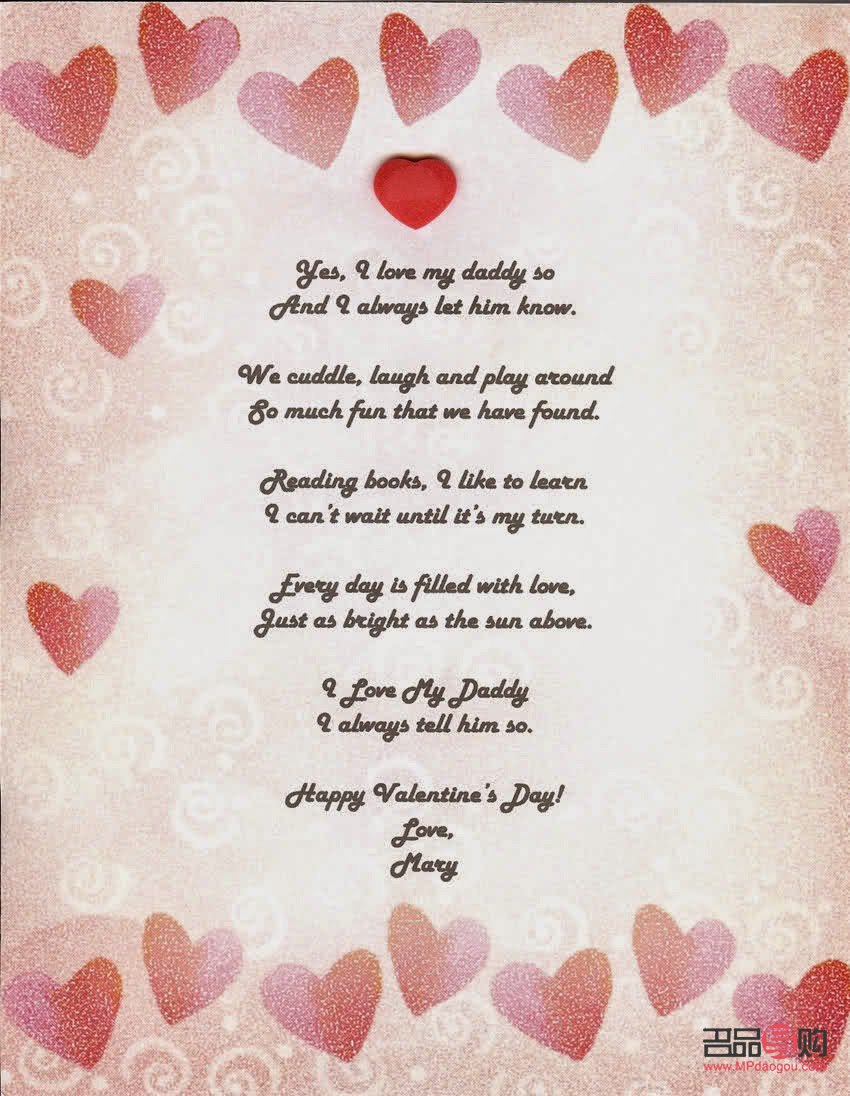 Yes, I love my daddy so
And I always let him know.
We cuddle, laugh and play around
So much fun that we have found.
Reading books, I like to learn
I can't wait until it's my turn.
Every day is filled with love,
Just as bright as the sun above.
I Love My Daddy
I always tell him so.
Happy Valentine's Day!
Love,
Mary
名品导购
www.MPdaogou.com